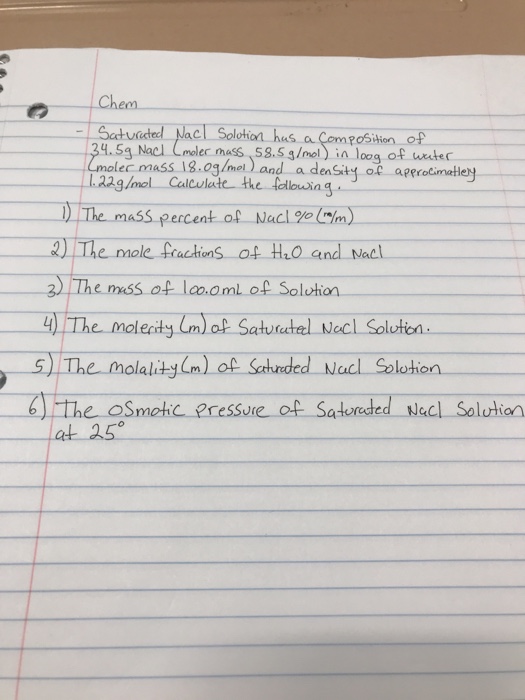 Chem
- Saturated Nacl Solution has a Composition of
34.5g Nacl (moler mass 58.5g/mol) in 100g of water
(moler mass 18.0g/mol) and a density of approcimatley
1.22g/mol Calculate the following.
1) The mass percent of Nacl % (m/m)
2) The mole fractions of H₂O and Nacl
3) The mass of 100.0mL of Solution
4) The molerity (m) of Saturated Nacl Solution.
5) The molality (m) of Saturated Nacl Solution
6) The osmotic pressure of Saturated Nacl Solution
at 25°